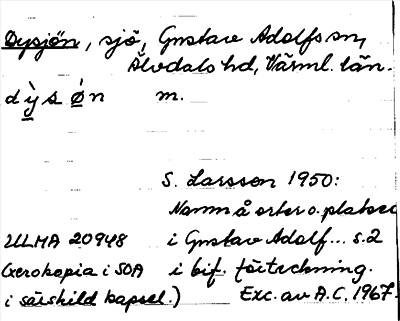 Dysjön, sjö, Gustav Adolfs sn,
Älvdals hd, Värml. län.
dỳsǿn m.
S. Larsson 1950:
Namn å orter o. platser
ULMA 20948 i Gustav Adolf... s.2
(xerokopia i SOA i bif. förteckning.
i särskild kapsel.) Exc. av A.C. 1967.